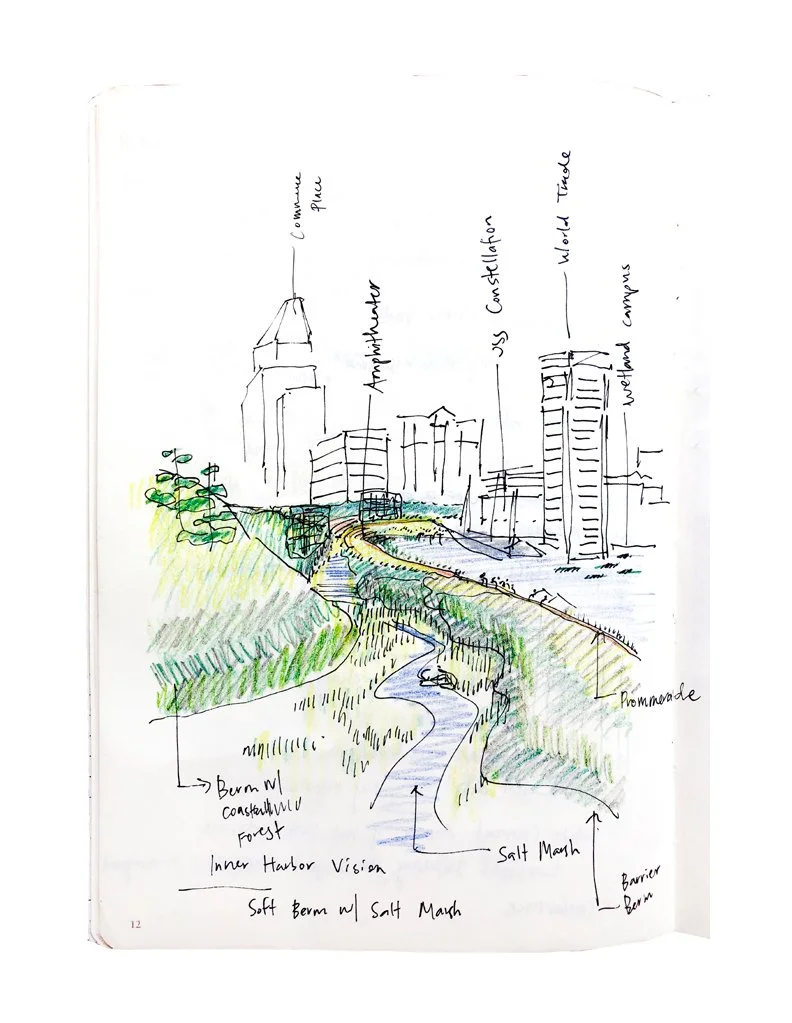 Commerce
Place
Amphitheater
USS Constellation
World Trade
Wetland campus
Prommenade
Berm w/
Coastal
Forest
Salt Marsh
Barrier
Berm
Inner Harbor Vision
Soft Berm w/ Salt Marsh
12